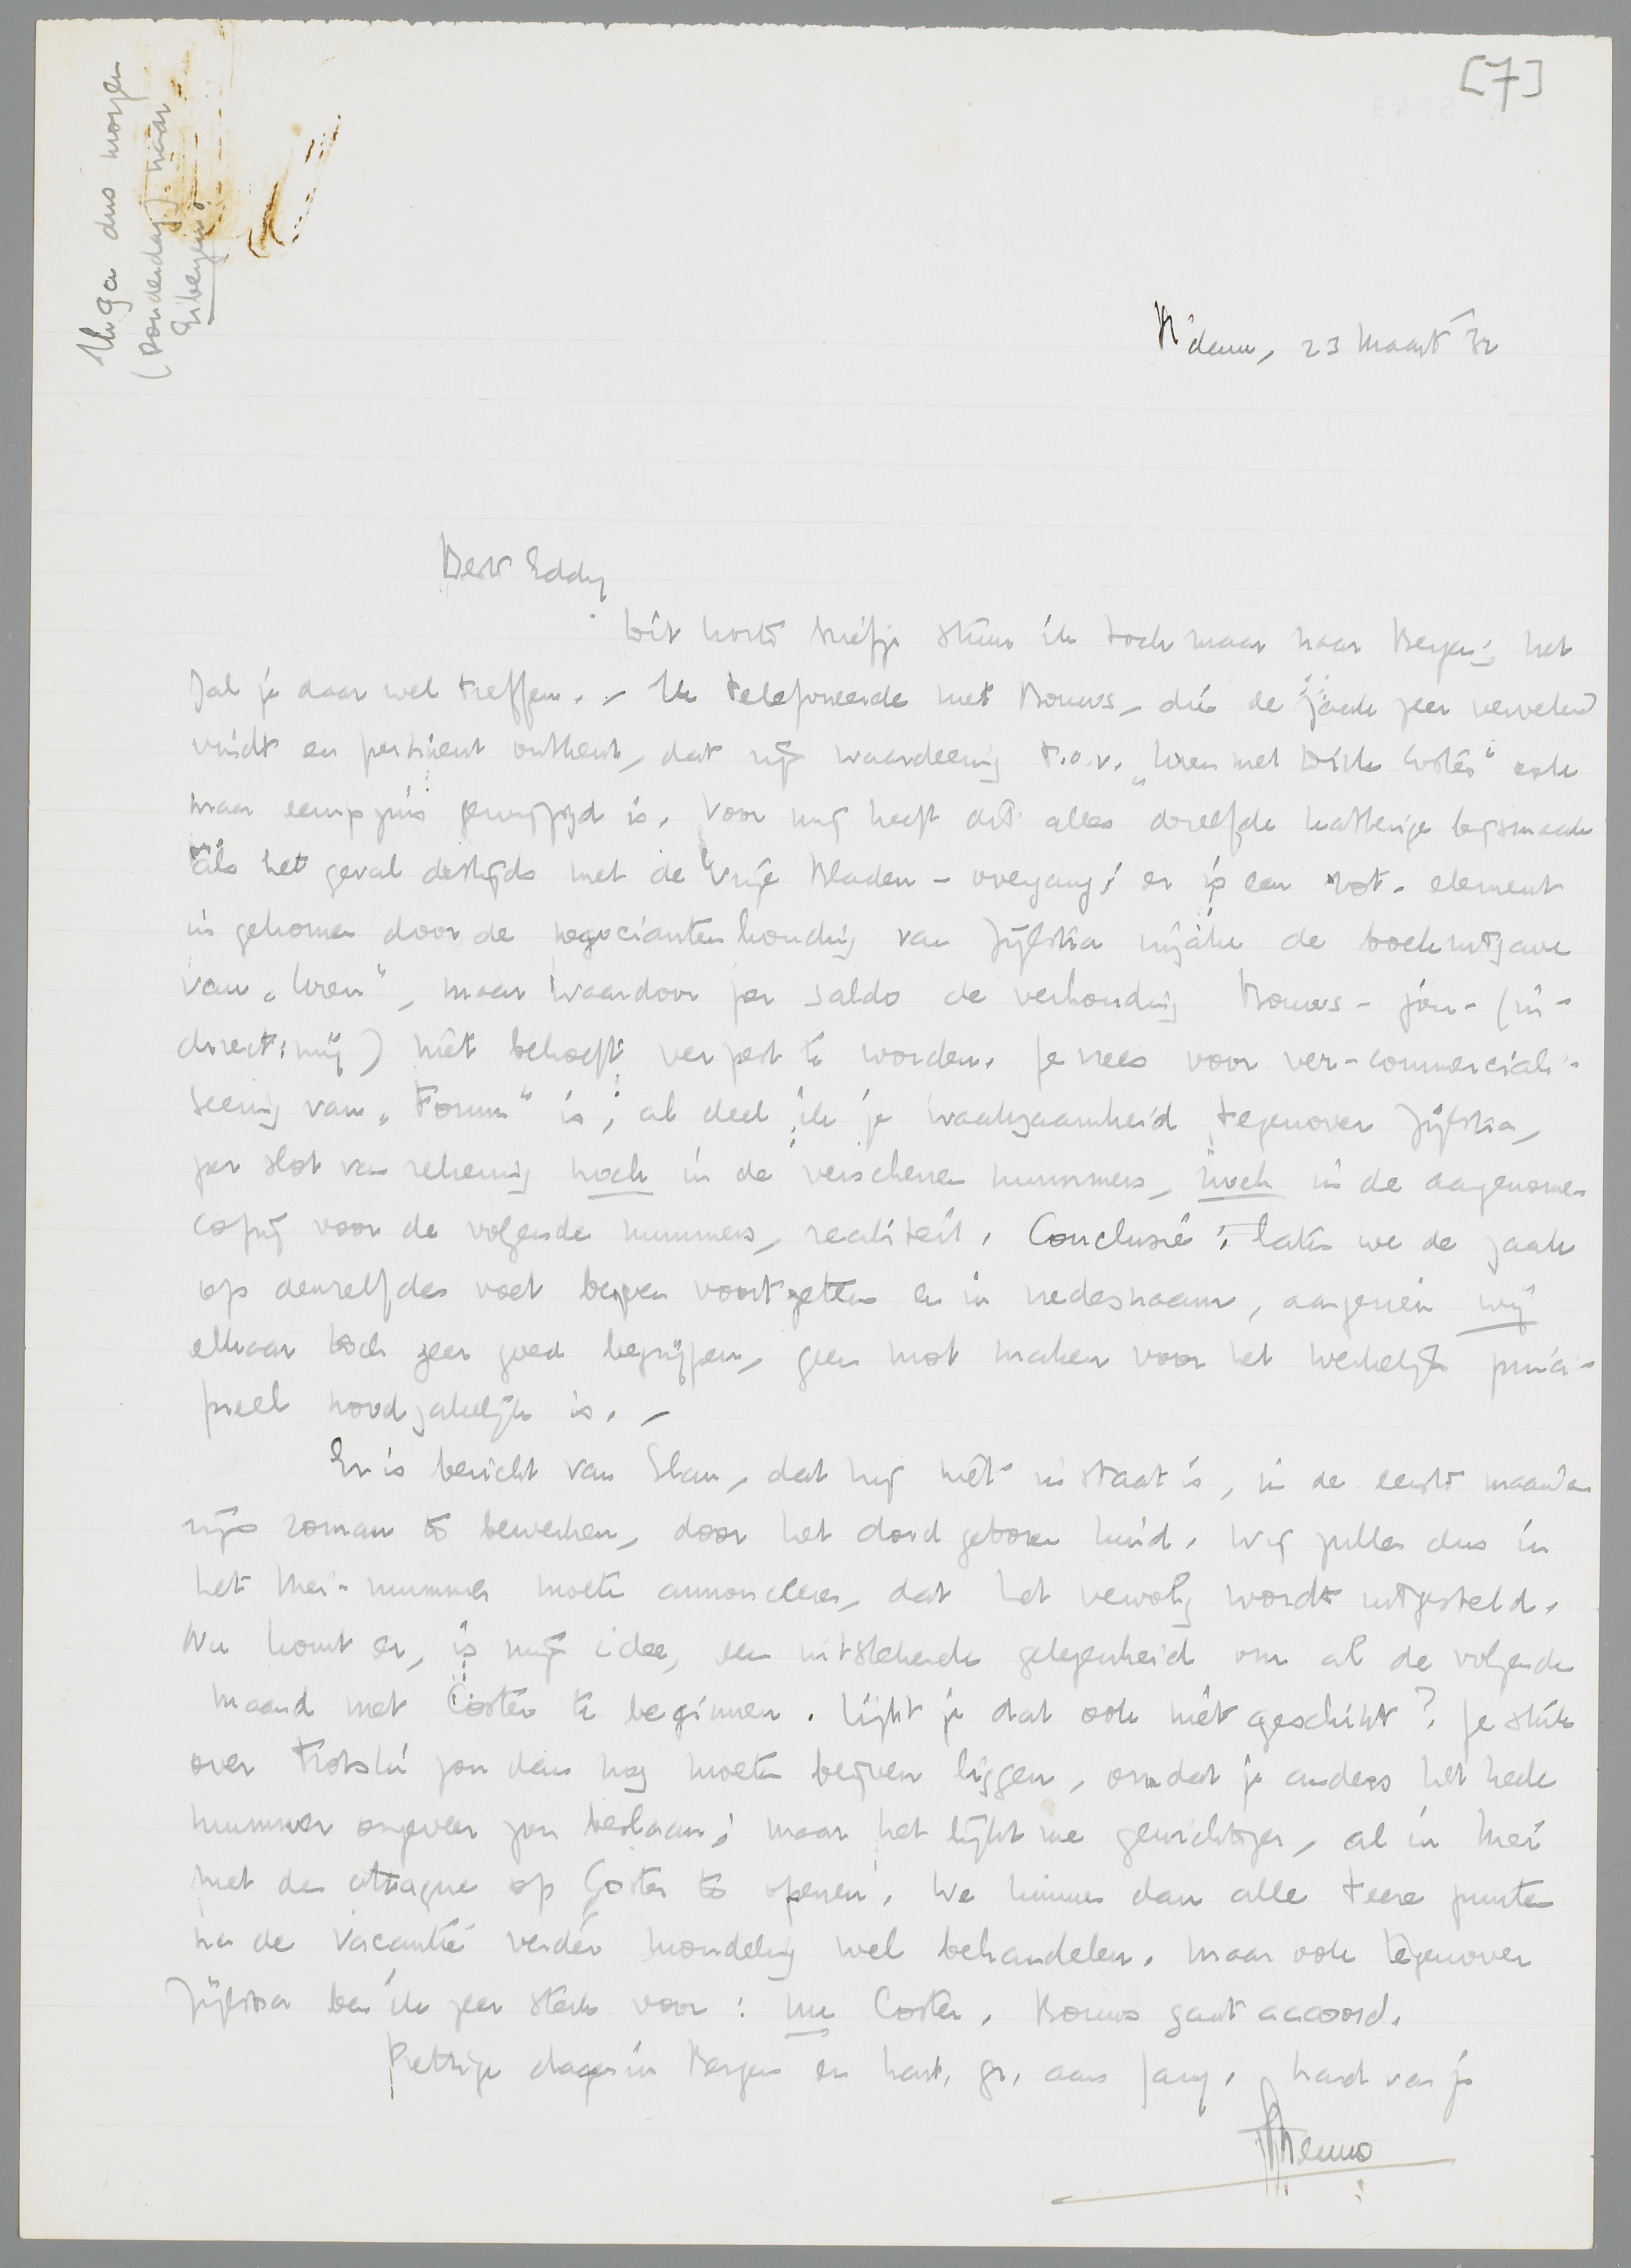 [7]
Ik ga dus morgen
(Donderdag) naar
Eibergen!
R'dam, 23 Maart '32
Beste Eddy
Dit korte briefje stuur ik toch maar naar Bergen; het
zal je daar wel treffen. - Ik telefoneerde met Bouws, die de zaak zeer vervelend
vindt en pertinent ontkent, dat zijn waardeering t.o.v. „Uren met Dirk Coster" ook
maar eenigszins gewijzigd is. Voor mij heeft dit alles dezelfde katterige bijsmaak
als het geval destijds met de Vrije Bladen-overgang; er is een rot-element
in gekomen door de negociantenhouding van Zijlstra inzake de boekuitgave
van „Uren", maar waardoor per saldo de verhouding Bouws-jou-(in-
direct: mij) niet behoeft verpest te worden. Je vrees voor ver-commerciali-
seering van „Forum" is, al deel ik je waakzaamheid tegenover Zijlstra,
per slot van rekening noch in de verschenen nummers, noch in de aangenomen
copij voor de volgende nummers, realiteit. Conclusie: laten we de zaak
op denzelfden voet blijven voortzetten en in vredesnaam, aangezien wij
elkaar toch zeer goed begrijpen, geen mot maken voor het werkelijk princi-
pieel noodzakelijk is. -
Er is bericht van Slau, dat hij niet in staat is, in de eerste maanden
zijn roman te bewerken, door het dood geboren kind. Wij zullen dus in
het Mei-nummer moeten annonceeren, dat het vervolg wordt uitgesteld.
Nu komt er, is mijn idee, een uitstekende gelegenheid om al de volgende
maand met Coster te beginnen. Lijkt je dat ook niet geschikt? Je stuk
over Trotski zou dan nog moeten blijven liggen, omdat je anders het heele
nummer ongeveer zou beslaan; maar het lijkt me gewichtiger, al in Mei
met de attaque op Coster te openen. We kunnen dan alle teere punten
na de vacantie verder mondeling wel behandelen. Maar ook tegenover
Zijlstra ben ik zeer sterk voor: nu Coster. Bouws gaat accoord.
Prettige dagen in Bergen en hart. gr. aan Jany. hand van je
Menno